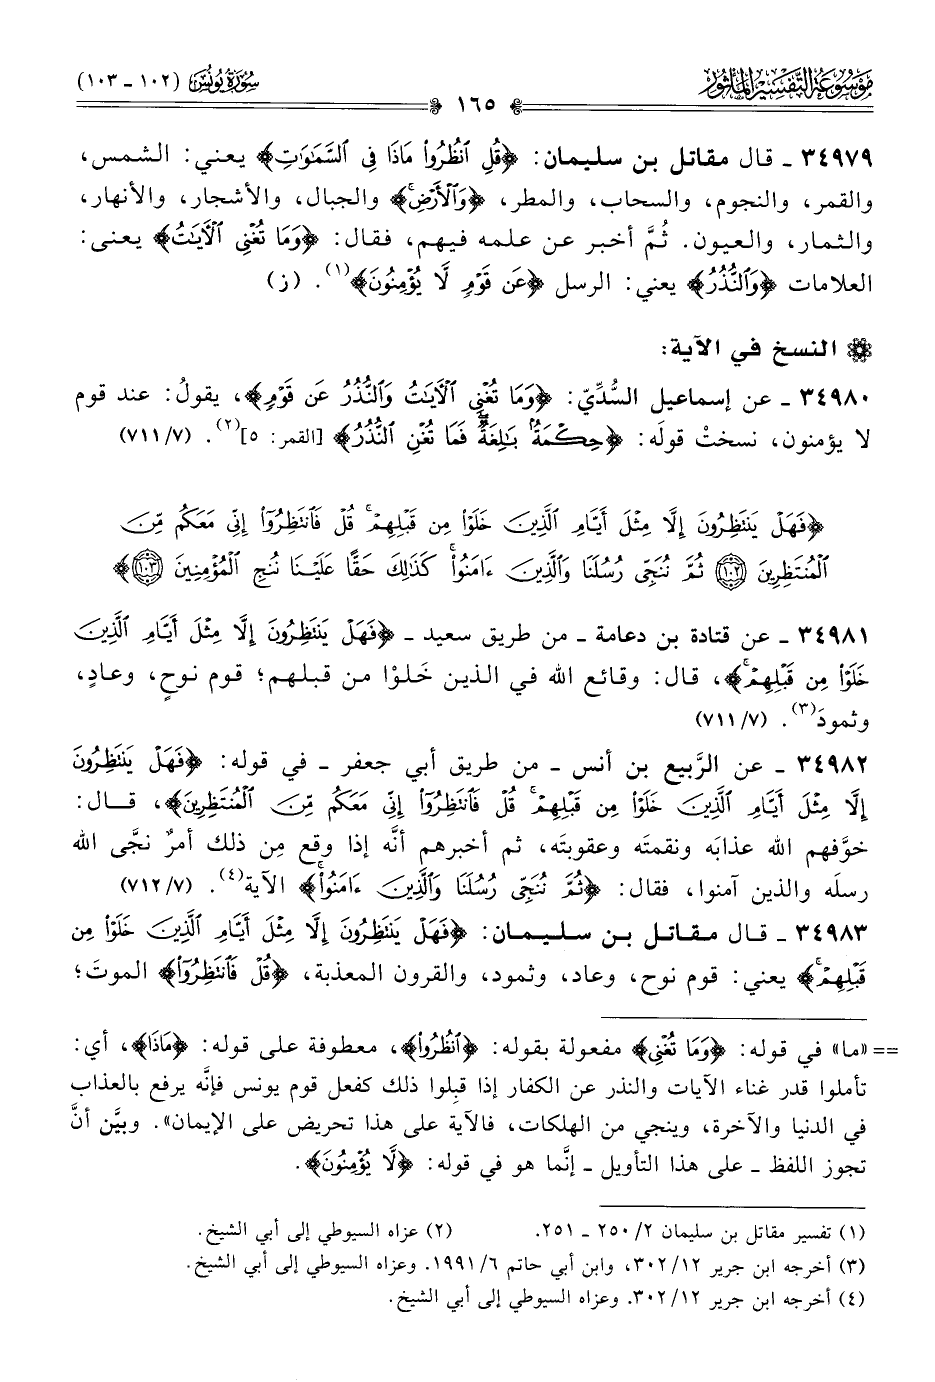 مَوْسُوعَة التَّفْسِير المَأثُور
سُورَةُ يُونُسَ (١٠٢ - ١٠٣)
١٦٥
٣٤٩٧٩ ـ قال مقاتل بن سليمان: ﴿قُلِ ٱنظُرُوا۟ مَاذَا فِى ٱلسَّمَٰوَٰتِ﴾ يعني: الشمس،
والقمر، والنجوم، والسحاب، والمطر، ﴿وَٱلْأَرْضِ﴾ والجبال، والأشجار، والأنهار،
والثمار، والعيون. ثُمَّ أخبر عن علمه فيهم، فقال: ﴿وَمَا تُغْنِى ٱلْءَايَٰتُ﴾ يعنى:
العلامات ﴿وَٱلنُّذُرُ﴾ يعني: الرسل ﴿عَن قَوْمٍ لَّا يُؤْمِنُونَ﴾(١). (ز)
النسخ في الآية:
٣٤٩٨٠ ـ عن إسماعيل السُّدِّيّ: ﴿وَمَا تُغْنِى ٱلْءَايَٰتُ وَٱلنُّذُرُ عَن قَوْمٍ﴾، يقولُ: عند قوم
لا يؤمنون، نسختْ قولَه: ﴿حِكْمَةٌۢ بَٰلِغَةٌ ۖ فَمَا تُغْنِ ٱلنُّذُرُ﴾ [القمر: ٥](٢). (٧/٧١١)
﴿فَهَلْ يَنتَظِرُونَ إِلَّا مِثْلَ أَيَّامِ ٱلَّذِينَ خَلَوْا۟ مِن قَبْلِهِمْ ۚ قُلْ فَٱنتَظِرُوٓا۟ إِنِّى مَعَكُم مِّنَ
ٱلْمُنتَظِرِينَ ١٠٢ ثُمَّ نُنَجِّى رُسُلَنَا وَٱلَّذِينَ ءَامَنُوا۟ ۚ كَذَٰلِكَ حَقًّا عَلَيْنَا نُنجِ ٱلْمُؤْمِنِينَ ١٠٣﴾
٣٤٩٨١ ـ عن قتادة بن دعامة ـ من طريق سعيد ـ ﴿فَهَلْ يَنتَظِرُونَ إِلَّا مِثْلَ أَيَّامِ ٱلَّذِينَ
خَلَوْا۟ مِن قَبْلِهِمْ ۚ﴾، قال: وقائع الله في الذين خَلوْا من قبلهم؛ قوم نوحٍ، وعادٍ،
وثمودَ(٣). (٧/٧١١)
٣٤٩٨٢ ـ عن الرَّبيع بن أنس ـ من طريق أبي جعفر ـ في قوله: ﴿فَهَلْ يَنتَظِرُونَ
إِلَّا مِثْلَ أَيَّامِ ٱلَّذِينَ خَلَوْا۟ مِن قَبْلِهِمْ ۚ قُلْ فَٱنتَظِرُوٓا۟ إِنِّى مَعَكُم مِّنَ ٱلْمُنتَظِرِينَ﴾، قال:
خوَّفهم الله عذابَه ونقمتَه وعقوبتَه، ثم أخبرهم أنَّه إذا وقع مِن ذلك أمرٌ نجَّى الله
رسلَه والذين آمنوا، فقال: ﴿ثُمَّ نُنَجِّى رُسُلَنَا وَٱلَّذِينَ ءَامَنُوا۟ ۚ﴾ الآية(٤). (٧/٧١٢)
٣٤٩٨٣ ـ قال مقاتل بن سليمان: ﴿فَهَلْ يَنتَظِرُونَ إِلَّا مِثْلَ أَيَّامِ ٱلَّذِينَ خَلَوْا۟ مِن
قَبْلِهِمْ ۚ﴾ يعني: قوم نوح، وعاد، وثمود، والقرون المعذبة، ﴿قُلْ فَٱنتَظِرُوٓا۟﴾ الموتَ؛
== «ما» في قوله: ﴿وَمَا تُغْنِى﴾ مفعولة بقوله: ﴿ٱنظُرُوا۟﴾، معطوفة على قوله: ﴿مَاذَا﴾، أي:
تأملوا قدر غناء الآيات والنذر عن الكفار إذا قبِلوا ذلك كفعل قوم يونس فإنَّه يرفع بالعذاب
في الدنيا والآخرة، وينجي من الهلكات، فالآية على هذا تحريض على الإيمان». وبيَّن أنَّ
تجوز اللفظ ـ على هذا التأويل ـ إنَّما هو في قوله: ﴿لَّا يُؤْمِنُونَ﴾.
(١) تفسير مقاتل بن سليمان ٢/ ٢٥٠ ـ ٢٥١. (٢) عزاه السيوطي إلى أبي الشيخ.
(٣) أخرجه ابن جرير ١٢/ ٣٠٢، وابن أبي حاتم ٦/ ١٩٩١. وعزاه السيوطي إلى أبي الشيخ.
(٤) أخرجه ابن جرير ١٢/ ٣٠٢. وعزاه السيوطي إلى أبي الشيخ.